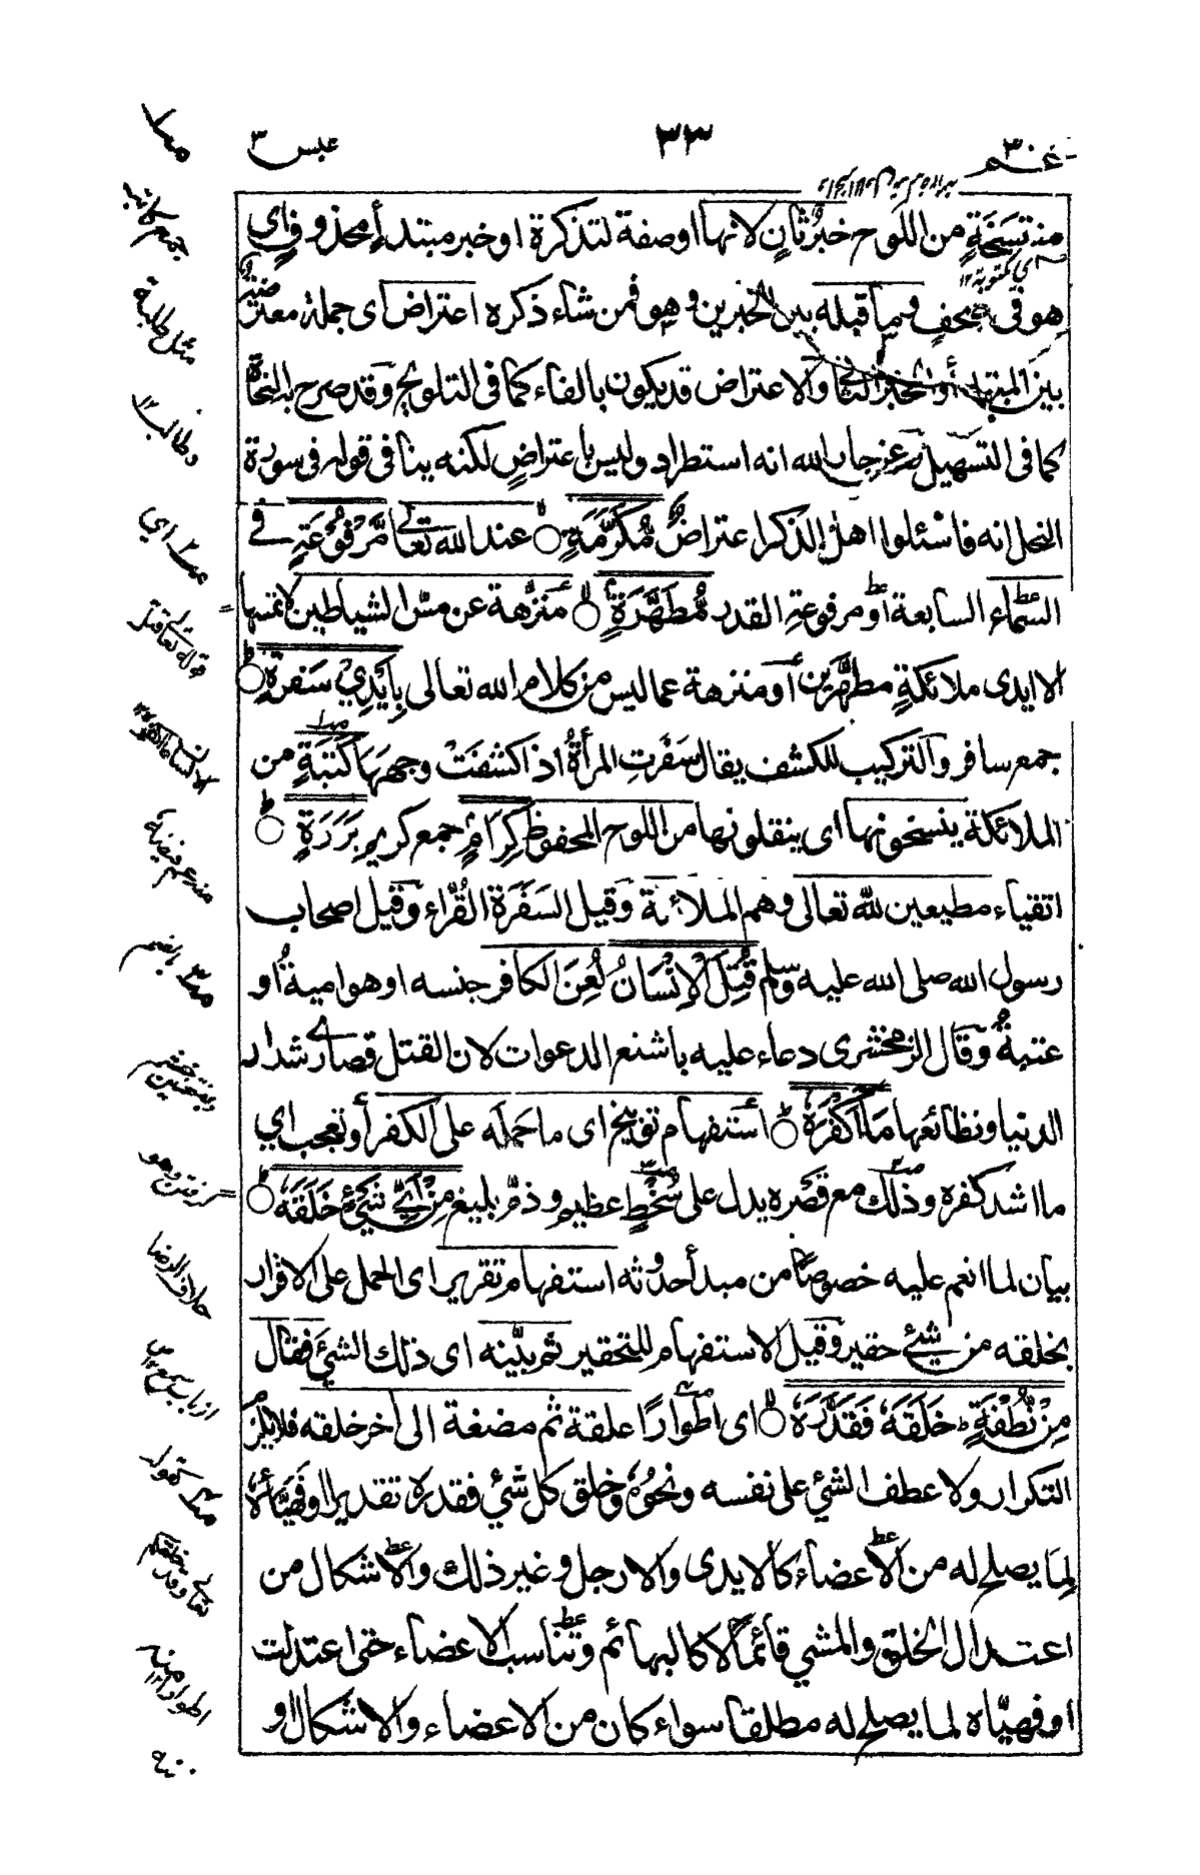 عم ٣٠
٣٣
عبس ٣
منتسخة من اللوح خبر ثان لانها او صفة لتذكرة او خبر مبتدأ محذوف اي
هو في صحف وما قبله بين الخبرين وهو فمن شاء ذكره اعتراض اى جملة معترضة
بين المبتدأ والخبر الثاني والاعتراض قد يكون بالفاء كما فى التلويح وقد صرح به النحاة
كما فى التسهيل وعن جار الله انه استطراد وليس باعتراض لكنه ينافى قوله فى سورة
النحل انه فاسئلوا اهل الذكر اعتراض مُّكَرَّمَةٍ ○ عند الله تعالى مَّرْفُوْعَةٍ في
السماء السابعة او مرفوعة القدر مُّطَهَّرَةٍ ○ منزهة عن مس الشياطين لا تمسها
الا ايدى ملائكة مطهرين او منزهة عما ليس من كلام الله تعالى بِاَيْدِيْ سَفَرَةٍ ○
جمع سافر والتركيب للكشف يقال سَفَرَتِ المرأةُ اذا كشفَتْ وجهَهَا كَتَبَةٍ من
الملائكة ينسخونها اى ينقلونها من اللوح المحفوظ كِرَامٍ جمع كريم بَرَرَةٍ ○
اتقياء مطيعين لله تعالى وهم الملائكة وقيل السَفَرَة القُرّاء وقيل اصحاب
رسول الله صلى الله عليه وسلم قُتِلَ الْاِنْسَانُ لُعِنَ الكافر جنسه او هو امية او
عتبة وقال الزمخشرى دعاء عليه باشنع الدعوات لان القتل قصارى شدائد
الدنيا ونظائعها مَا اَكْفَرَهٗ ○ استفهام توبيخ اى ما حمله على الكفر أو تعجب اي
ما اشد كفره وذلك مع قصره يدل على سُخْطٍ عظيم وذم بليغ مِنْ اَيِّ شَيْءٍ خَلَقَهٗ ○
بيان لما انعم عليه خصوصًا من مبدأ حدوثه استفهام تقرير اى الحمل على الاقرار
بخلقه من شيئ حقير وقيل الاستفهام للتحقير ثم بيّنه اى ذلك الشيئ فقال
مِنْ نُّطْفَةٍ خَلَقَهٗ فَقَدَّرَهٗ ○ اى اطوارًا علقة ثم مضغة الى اخر خلقه فلا يلزم
التكرار ولا عطف الشئ على نفسه ونحوه وخلق كل شئ فقدره تقديرا او فهيّأه
لِمَا يصلح له من الاعضاء كالايدى والارجل وغير ذلك والاشكال من
اعتدال الخلق والمشي قائمًا لا كالبهائم وتناسب الاعضاء حتى اعتدلت
او فهيّاه لما يصلح له مطلقا سواء كان من الاعضاء والاشكال او
جمع كاتب
مثل طلبة
وطالب ١٢
اي
قوله تعالى قتل
الانسان ما اكفره
بالضم
وبفتحتين خشم
گرفتن وهو
خلاف الرضا
از باب سمع
كقوله
تعالى وقد خلقكم
اطوارا ١٢ منه